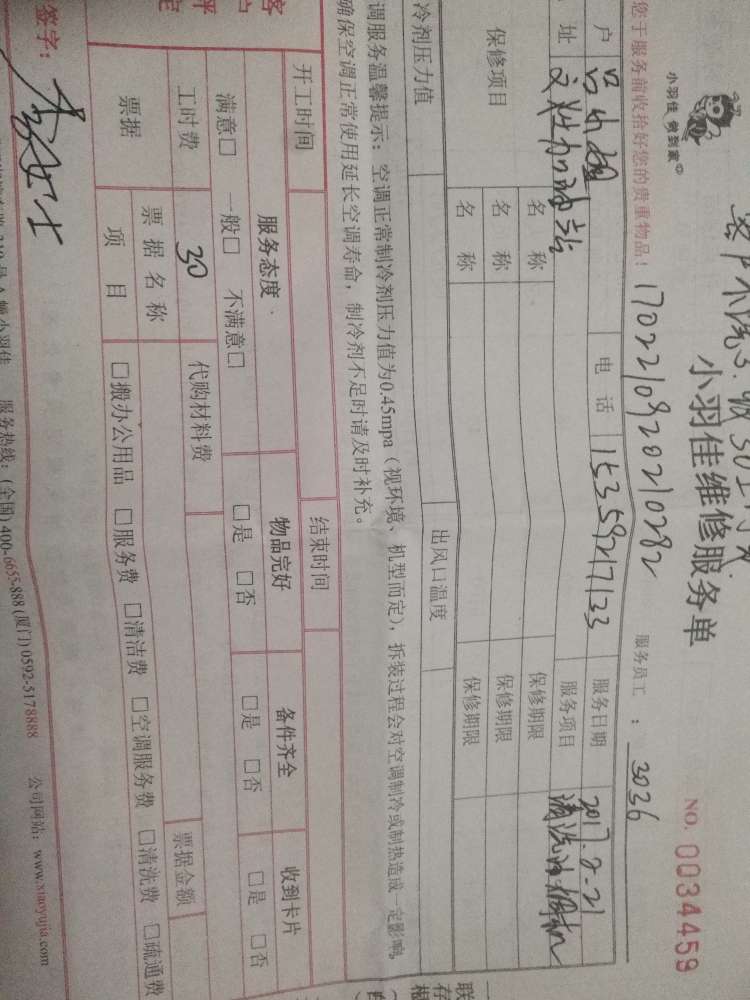 小羽佳 做到家
小羽佳维修服务单
NO. 0034459
您于服务前收拾好您的贵重物品!
17022109202110282
服务员工 : 3036
户
电 话 15359217133
服务日期 2017.2-21
址 文灶加油站
服务项目 清洗油烟机
保修项目
名 称
保修期限
名 称
保修期限
名 称
保修期限
冷剂压力值
出风口温度
调服务温馨提示:空调正常制冷剂压力值为0.45mpa(视环境、机型而定),拆装过程会对空调制冷或制热造成一定影响,
确保空调正常使用延长空调寿命,制冷剂不足时请及时补充。
开工时间
结束时间
服务态度
物品完好
备件齐全
收到卡片
满意□ 一般□ 不满意□
□是 □否
□是 □否
□是 □否
工时费 30
代购材料费
票据
票据名称
票据金额
项 目
□搬办公用品 □服务费 □清洁费 □空调服务费 □清洗费 □疏通费
签字: 李女士
服务热线:(全国)400-6655-888 (厦门) 0592-5178888 公司网站:www.xiaoyujia.com